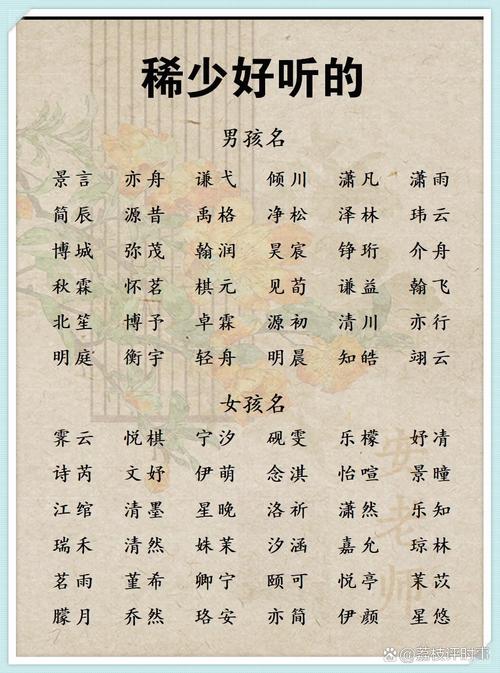 稀少好听的
男孩名
景言 亦舟 谦弋 倾川 潇凡 潇雨
简辰 源昔 禹格 净松 泽林 玮云
博城 弥茂 翰润 昊宸 铮珩 介舟
秋霖 怀茗 棋元 见荀 谦益 翰飞
北笙 博予 卓霖 源初 清川 亦行
明庭 衡宇 轻舟 明晨 知皓 翊云
女孩名
霁云 悦棋 宁汐 砚雯 乐檬 妤清
诗芮 文妤 伊萌 念淇 怡喧 景曈
江绾 清墨 星晚 洛祈 潇然 乐知
瑞禾 清然 姝茉 汐涵 嘉允 琼林
茗雨 堇希 卿宁 颐可 悦亭 茉苡
朦月 乔然 珞安 亦简 伊颜 星悠
安老师
@荔枝评时事